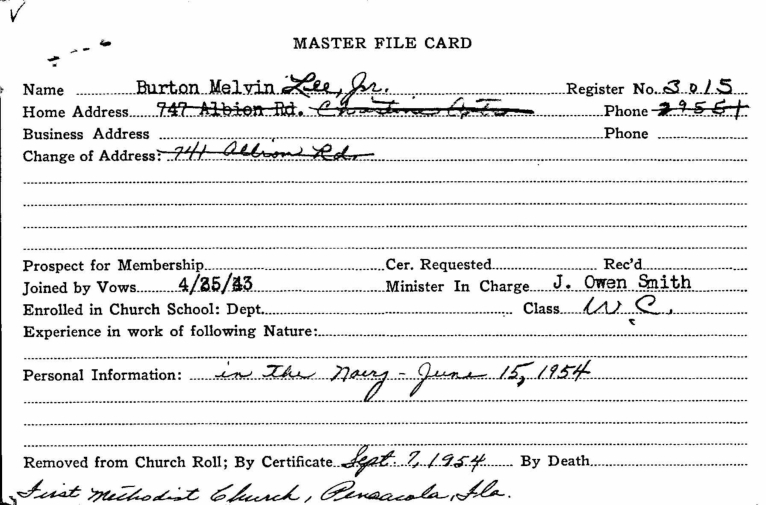 MASTER FILE CARD
Name Burton Melvin Lee, Jr. Register No. 3015
Home Address 747 Albion Rd. Phone 29551
Business Address Phone
Change of Address: 741 Albion Rd.
Prospect for Membership Cer. Requested Rec'd
Joined by Vows 4/25/43 Minister In Charge J. Owen Smith
Enrolled in Church School: Dept. Class W C.
Experience in work of following Nature:
Personal Information: in the Navy - June 15, 1954
Removed from Church Roll; By Certificate Sept. 7, 1954 By Death
First Methodist Church, Pensacola, Fla.